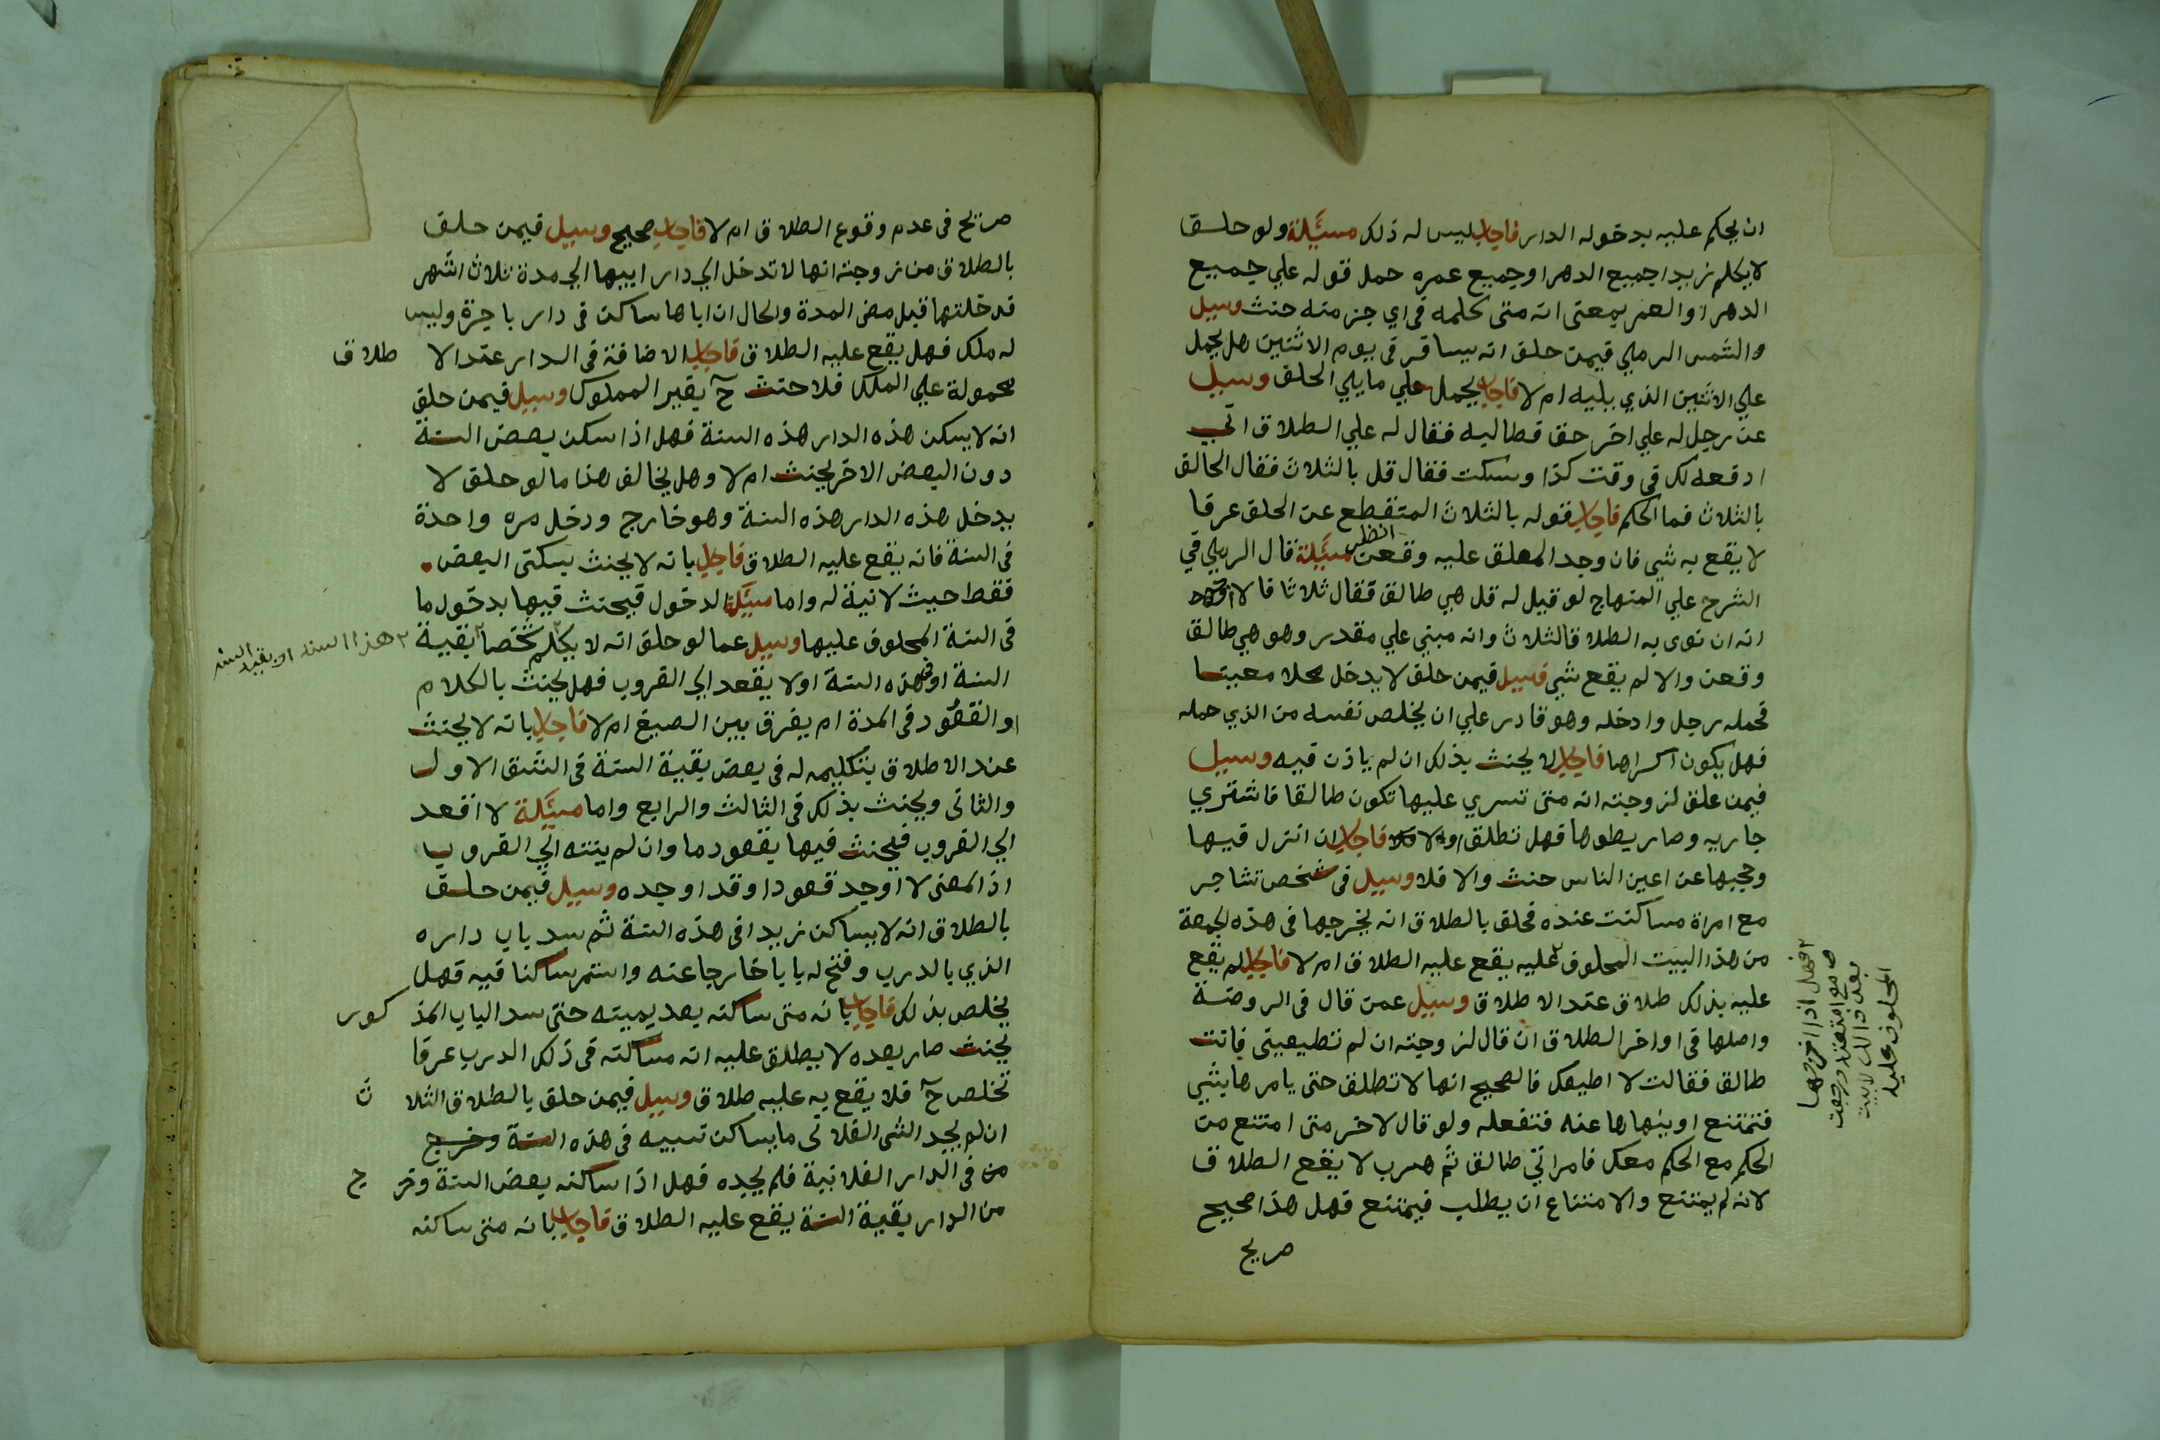 ان يحكم عليه بدخوله الدار فاجاب ليس له ذلك مسئلة ولو حلف
لا يكلم زيدا جميع الدهر او جميع عمره حمل قوله علي جميع
الدهر او العمر بمعنى انه متى كلمه في اي جزء منه حنث وسيل
والشمس الرملي فيمن حلف انه يسافر في يوم الاثنين هل يحمل
علي الاثنين الذي يليه ام لا فاجاب يحمل علي ما يلي الحلف وسيل
عن رجل له علي اخر حق فطالبه فقال له علي الطلاق اني
ادفعه لك في وقت كذا وسكت فقال قل بالثلاث فقال الحالف
بالثلاث فما الحكم فاجاب قوله بالثلاث المنقطع عن الحلف عرفا
لا يقع به شي فان وجد المعلق عليه وقعت انظر مسئلة قال الرملي في
الشرح علي المنهاج لو قيل له قل هي طالق فقال ثلاثا فالاوجه
انه ان نوى به الطلاق فالثلاث وانه مبني علي مقدر وهو هي طالق
وقعن والا لم يقع شي فسيل فيمن حلف لا يدخل محلا معينا
فحمله رجل وادخله وهو قادر علي ان يخلص نفسه من الذي حمله
فهل يكون اكراها فاجاب لا يحنث بذلك ان لم ياذن فيه وسيل
فيمن علق لزوجته انه متى تسري عليها تكون طالقا فاشتري
جاريه وصار يطوها فهل تطلق او لا فاجاب ان انزل فيها
وحجبها عن اعين الناس حنث والا فلا وسيل في شخص تشاجر
مع امراة ساكنت عنده فحلف بالطلاق انه يخرجها في هذه الجمعة
من هذا البيت المحلوف عليه يقع عليه الطلاق ام لا فاجاب لم يقع
فهل اذا اخرجها
عليه بذلك طلاق عند الاطلاق وسيل عمن قال في الروضة
واصلها في اواخر الطلاق ان قال لزوجته ان لم تطيعيني فانت
طالق فقالت لا اطيعك فالصحيح انها لا تطلق حتى يامرها بشي
فتمتنع او ينهاها عنه فتفعله ولو قال لاخر متى امتنع من
الحكم مع الحكم معك فامراتي طالق ثم هرب لا يقع الطلاق
لانه لم يمتنع والامتناع ان يطلب فيمتنع فهل هذا صحيح
صريح
المحلوف عليه
صريح في عدم وقوع الطلاق ام لا فاجاب صحيح وسيل فيمن حلف
بالطلاق من زوجته انها لا تدخل الي دار ابيها الي مدة ثلاث اشهر
فدخلتها قبل مضى المدة والحال ان اباها ساكن في دار باجرة وليس
له ملك فهل يقع عليه الطلاق فاجاب الاضافة في الدار عند الا طلاق
محمولة علي الملك فلا حنث ح بغير المملوك وسيل فيمن حلف
انه لا يسكن هذه الدار هذه السنة فهل اذا سكن بعض السنة
دون البعض الاخر يحنث ام لا وهل يخالف هذا ما لو حلف لا
يدخل هذه الدار هذه السنة وهو خارج ودخل مره واحدة
في السنة فانه يقع عليه الطلاق فاجاب بانه لا يحنث بسكنى البعض
فقط حيث لا نية له واما مسئلة الدخول فيحنث فيها بدخول ما
في السنة المحلوف عليها وسيل عما لو حلف انه لا يكلم شخصا بقية
هذا السنه او بقية السنه
السنة او في هذه السنة او لا يقعد الي القروب فهل يحنث بالكلام
او القعود في المدة ام يفرق بين الصيغ ام لا فاجاب بانه لا يحنث
عند الاطلاق بتكليمه له في بعض بقية السنة في الشق الاول
والثاني ويحنث بذلك في الثالث والرابع واما مسئلة لا اقعد
الي القروب فيحنث فيها بقعود ما وان لم ينته الي القروب
اذ المعنى لا اوجد قعودا وقد اوجده وسيل فيمن حلف
بالطلاق انه لا يساكن زيدا في هذه السنة ثم سد باب داره
الذي بالدرب وفتح له بابا خارجا عنه واستمر ساكنا فيه فهل
يخلص بذلك فاجاب بانه متى ساكنه بعد يمينه حتى سد الباب المذ كور
يحنث صار بعده لا يطلق عليه انه مساكنه في ذلك الدرب عرفا
تخلص ح فلا يقع به عليه طلاق وسيل فيمن حلف بالطلاق الثلا ث
ان لم يجد الشي الفلاني ما يساكن نسيبه في هذه السنة وخرج
من في الدار الفلانية فلم يجده فهل اذا ساكنه بعض السنة وخر ج
من الدار بقية السنة يقع عليه الطلاق فاجاب بانه متى ساكنه